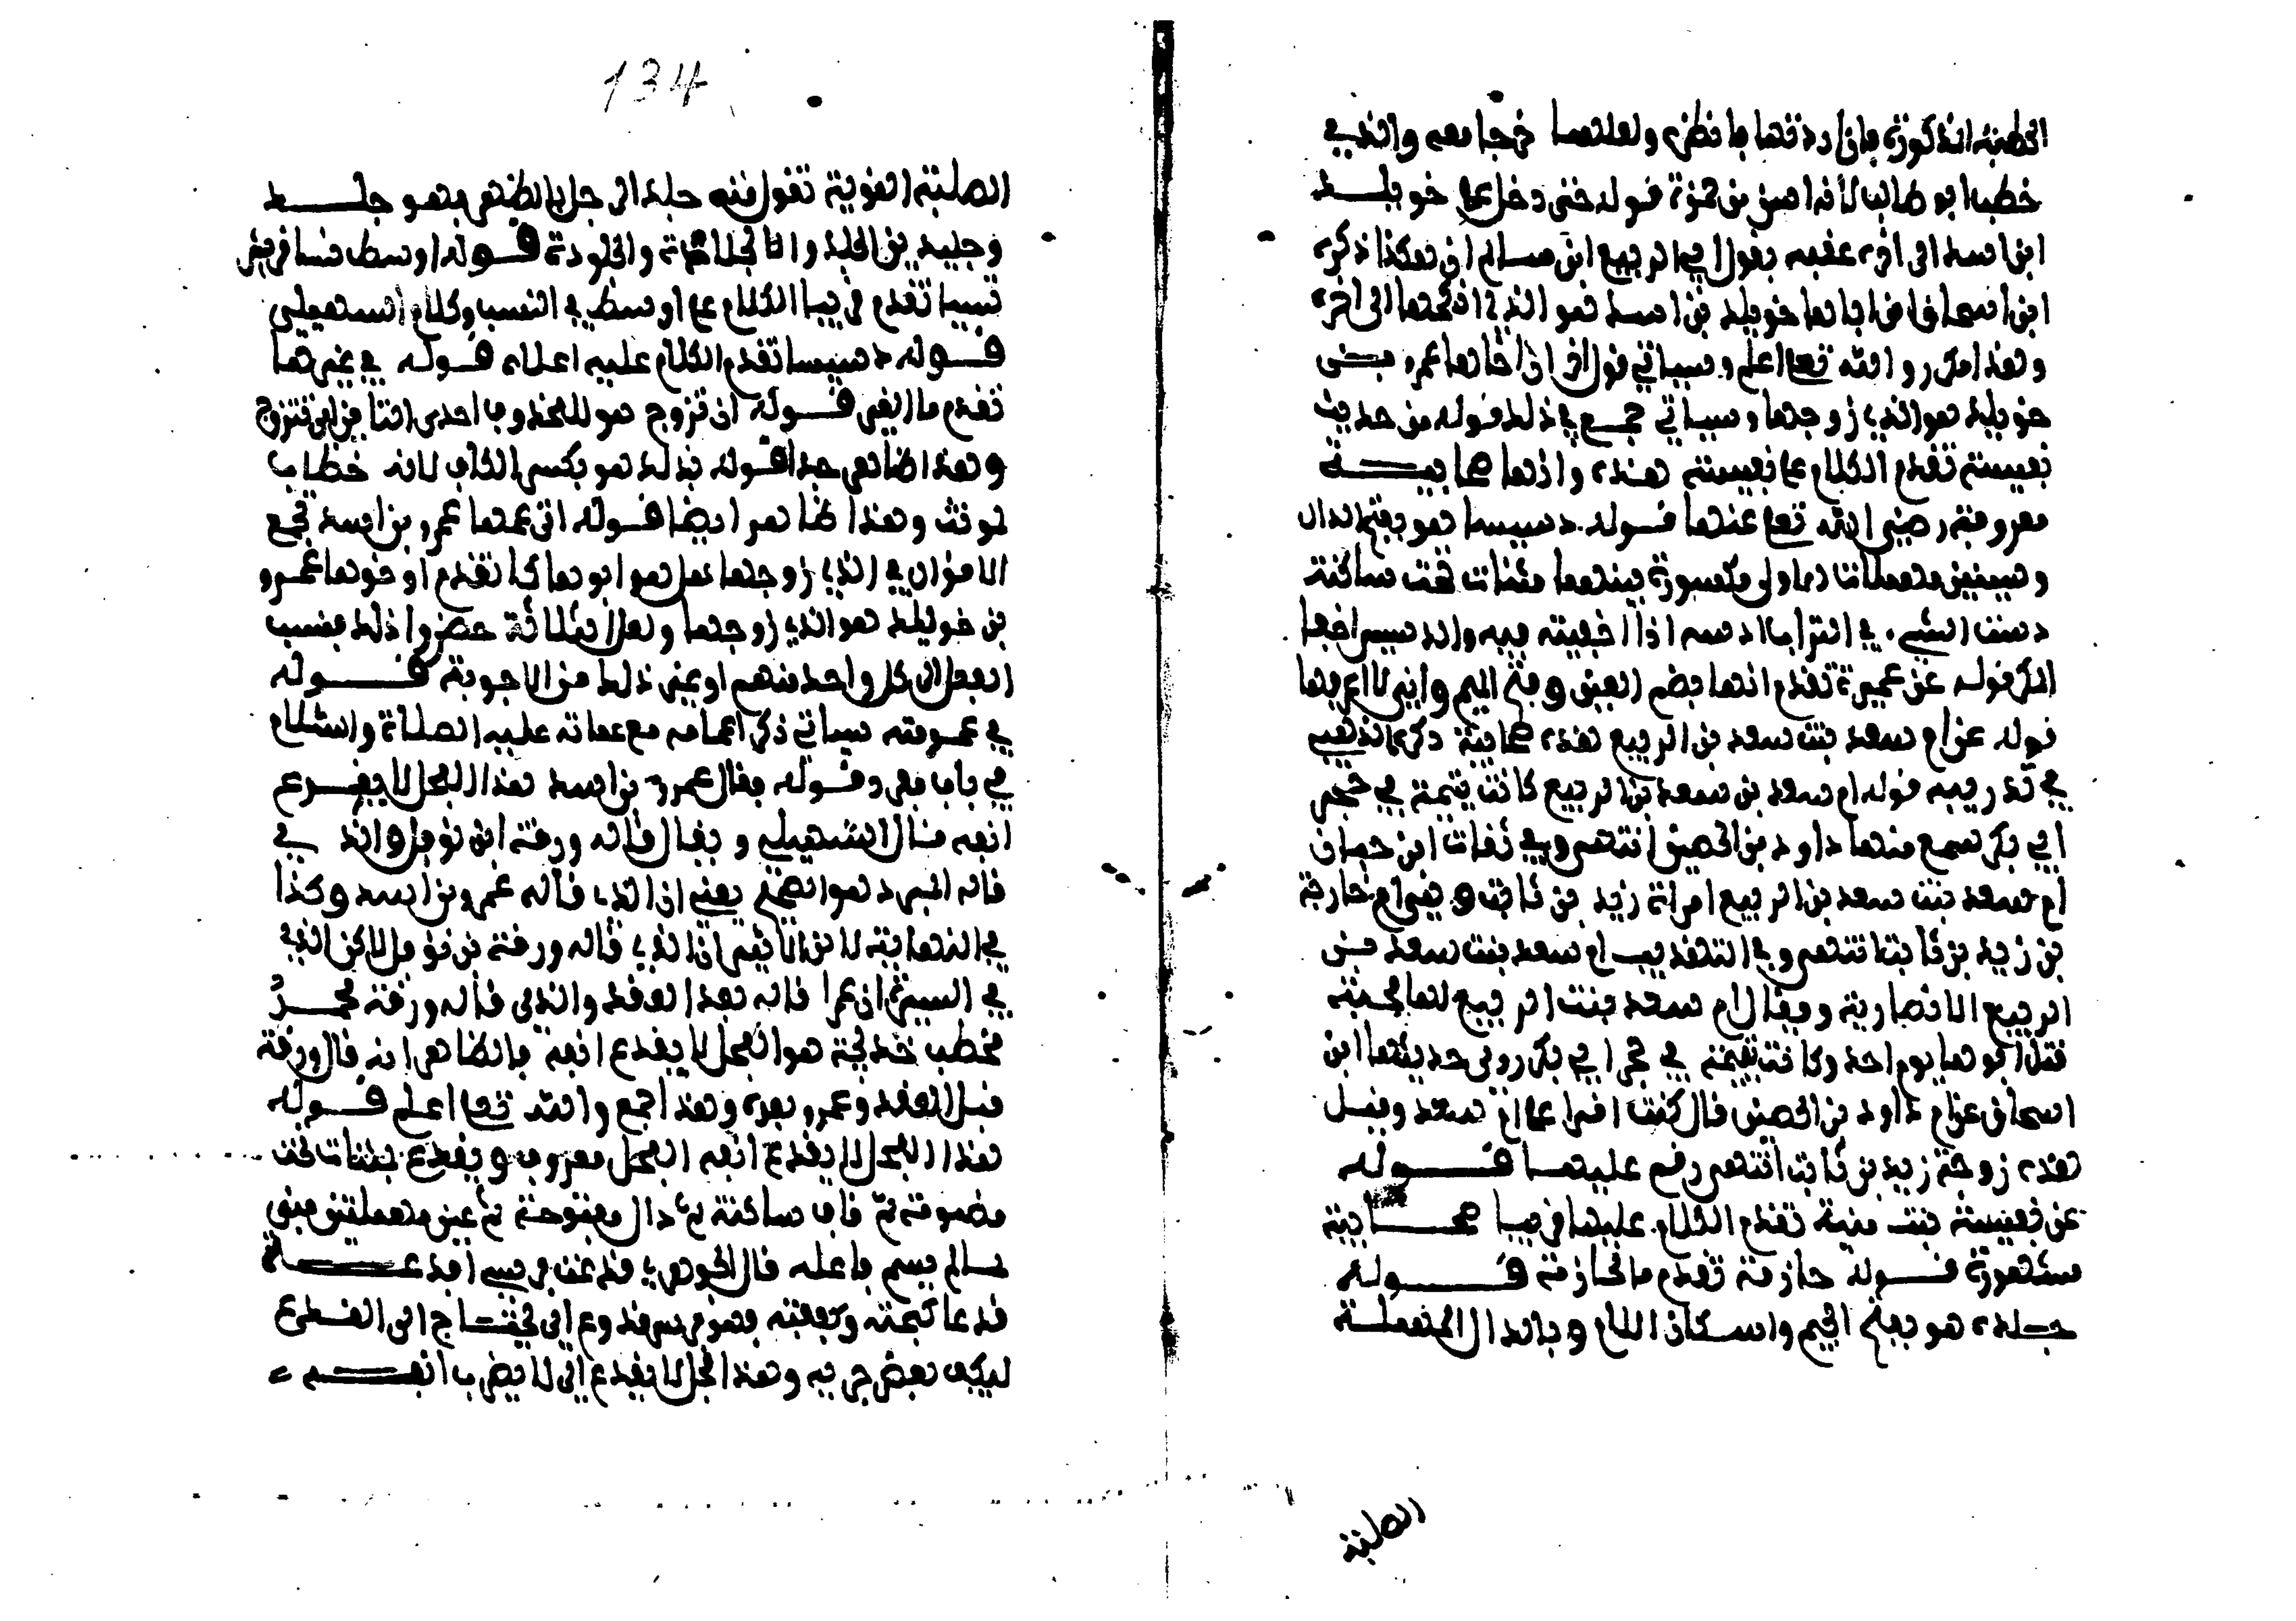 الخطبة المذكورة فان اردتها فانظره ولعلهما خرجا معه والذي
خطب ابو طالب لانه اسن من حمزة قوله حتى دخل على خويلد
ابن اسد الى اخره عقبه بقول ابي الربيع ابن سالم ان هكذا ذكره
ابن اسحاق ان اباها خويلد بن اسد هو الذي انكحها الى اخره
وهذا والله تعالى اعلم وسياتي قول اخر ان اخاها عمرو بن
خويلد هو الذي زوجها وسياتي جمع في ذلك قوله من حديث
نفيسة تقدم الكلام على نفيسة هذه وانها صحابية
معروفة رضي الله تعالى عنها قوله دسيسا هو بفتح الدال
وسينين مهملتين الاولى مكسورة بينهما مثنات تحت ساكنة
دسست الشيء في التراب ادسه اذا اخفيته فيه والدسيس اخفا
المكر قوله عن عميرة تقدم انها بضم العين وفتح الميم واني لا اعرفها
قوله عن ام سعد بنت سعد بن الربيع هذه صحابية ذكرها الذهبي
في تذهيبه قوله ام سعد بن سعد بن الربيع كانت يتيمة في حجر
ابي بكر سمع منها داود بن الحصين انتهى وفي ثقات ابن حبان
ام سعد بنت سعد بن الربيع امراة زيد بن ثابت وهي ام خارجة
بن زيد بن ثابت انتهى وفي التهذيب ام سعد بنت سعد بن
الربيع الانصارية ويقال ام سعد بنت الربيع لها صحبة
قتل ابوها يوم احد وكانت يتيمة في حجر ابي بكر روى حديثها ابن
اسحاق عن داود بن الحصين قال كنت اقرا على ام سعد وقيل
هذه زوجة زيد بن ثابت انتهى رقم عليها قوله
عن نفيسة بنت منية تقدم الكلام عليها قريبا صحابية
مشهورة قوله حازمة تقدم ما الحازمة قوله
جلدة هو بفتح الجيم واسكان اللام وبالدال المهملة
الصلبة
134
الصلبة القوية تقول منه جلد الرجل بالضم فهو جلد
وجليد بين الجلد والجلادة والجلودة قوله اوسط نسا قريش
نسبا تقدم قريبا الكلام على اوسط في النسب وكلام السهيلي
قوله دسيسا تقدم الكلام عليه اعلاه قوله في عيرها
تقدم ما العير قوله ان تزوج هو للحذوف احدى التاين اي تتزوج
وهذا ظاهر جدا قوله بذلك هو بكسر الكاف لانه خطاب
لمونث وهذا ظاهر ايضا قوله ان عمها عمرو بن اسد تجمع
الاقوال في الذي زوجها هل هو ابوها كما تقدم او اخوها عمرو
بن خويلد هو الذي زوجها ولعل الثلاثة حضروا ذلك فنسب
الفعل الى كل واحد منهم او غير ذلك من الاجوبة قوله
في عمومته سياتي ذكر اعمامه مع عماته عليه الصلاة والسلام
في باب مفرد قوله فقال عمرو بن اسد هذا الفحل لا يقرع
انفه قال السهيلي ويقال قاله ورقة ابن نوفل والذي
قاله المبرد هو الصحيح يعني ان الذي قاله عمرو بن اسد وكذا
في النهاية لابن الاثير ان الذي قاله ورقة بن نوفل لاكن الذي
في السيرة ان عمرا قاله بعد العقد والذي قاله ورقة محمد
يخطب خديجة هو الفحل لا يقدع انفه فالظاهر انه قال ورقة
قبل العقد وعمرو بعده وهذا جمع والله تعالى اعلم قوله
هذا الفحل لا يقدع انفه الفحل معروف ويقدع بمثنات تحت
مضمومة ثم قاف ساكنة ثم دال مفتوحة ثم عين مهملتين مبني
لما لم يسم فاعله قال الجوهري قدعت فرسي اقدعه
قدعا كبحته وكففته فهو فرس قدوع اي يحتاج الى القدع
ليكف بعض جريه وهذا فحل لا يقدع اي لا يضرب انفه